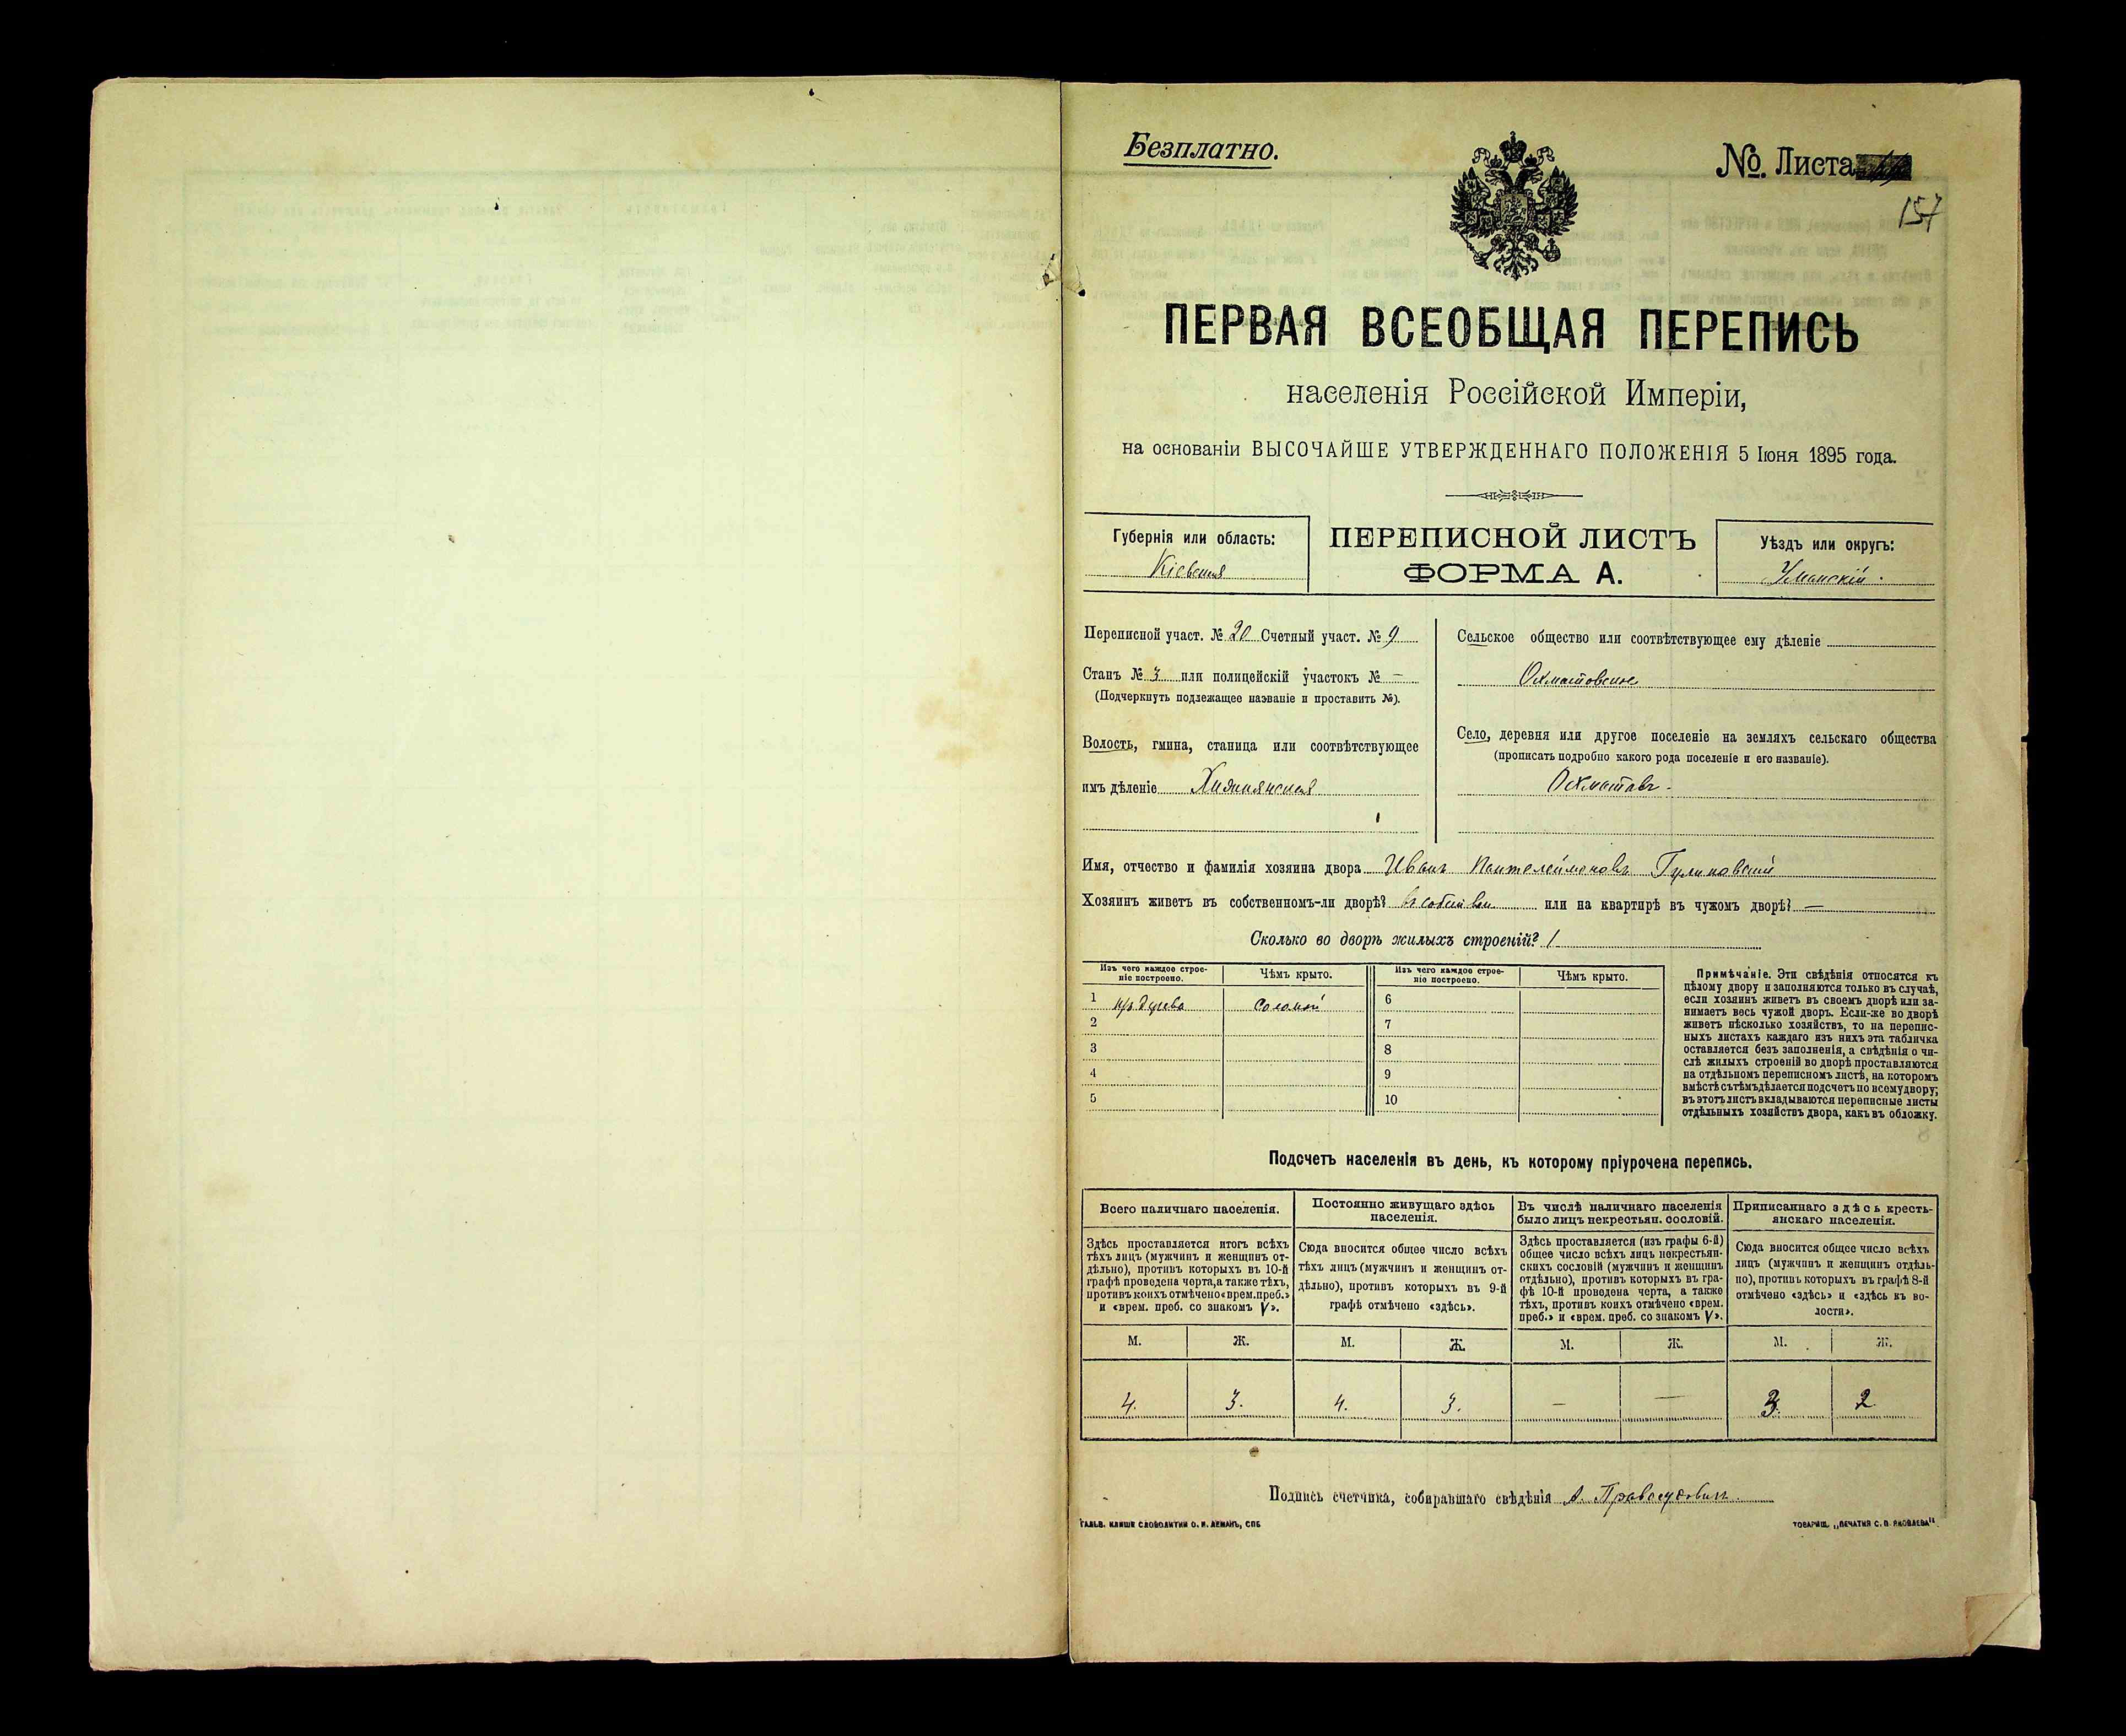 Безплатно.
№. Листа
157
ПЕРВАЯ ВСЕОБЩАЯ ПЕРЕПИСЬ
населенія Россійской Имперіи,
на основаніи ВЫСОЧАЙШЕ УТВЕРЖДЕННАГО ПОЛОЖЕНІЯ 5 Іюня 1895 года.
Губернія или область:
Кіевская
ПЕРЕПИСНОЙ ЛИСТЪ
ФОРМА А.
Уѣздъ или округъ:
Уманскій.
Переписной участ. № 20 Счетный участ. № 9
Станъ № 3 или полицейскій участокъ № —
(Подчеркнуть подлежащее названіе и проставить №).
Волость, гмина, станица или соотвѣтствующее
имъ дѣленіе
Сельское общество или соотвѣтствующее ему дѣленіе
Охматовское
Село, деревня или другое поселеніе на земляхъ сельскаго общества
(прописать подробно какого рода поселеніе и его названіе).
Охматовъ.
Имя, отчество и фамилія хозяина двора Иванъ Пантелеймоновъ Гулиновскій
Хозяинъ живетъ въ собственномъ-ли дворѣ? или на квартирѣ въ чужомъ дворѣ? —
Сколько во дворѣ жилыхъ строеній? 1
Изъ чего каждое строе-
ніе построено.
Чѣмъ крыто.
Изъ чего каждое строе-
ніе построено.
Чѣмъ крыто.
1 изъ дерева соломой
2
3
4
5
6
7
8
9
10
Примѣчаніе. Эти свѣдѣнія относятся къ
цѣлому двору и заполняются только въ случаѣ,
если хозяинъ живетъ въ своемъ дворѣ или за-
нимаетъ весь чужой дворъ. Если-же во дворѣ
живетъ нѣсколько хозяйствъ, то на перепис-
ныхъ листахъ каждаго изъ нихъ эта табличка
оставляется безъ заполненія, а свѣдѣнія о чи-
слѣ жилыхъ строеній во дворѣ проставляются
на отдѣльномъ переписномъ листѣ, на которомъ
вмѣстѣ съ тѣмъ дѣлается подсчетъ по всему двору;
въ этотъ листъ вкладываются переписные листы
отдѣльныхъ хозяйствъ двора, какъ въ обложку.
Подсчетъ населенія въ день, къ которому пріурочена перепись.
Всего наличнаго населенія.
Здѣсь проставляется итогъ всѣхъ
тѣхъ лицъ (мужчинъ и женщинъ от-
дѣльно), противъ которыхъ въ 10-й
графѣ проведена черта, а также тѣхъ,
противъ коихъ отмѣчено «врем. преб.»
и «врем. преб. со знакомъ V».
Постоянно живущаго здѣсь
населенія.
Сюда вносится общее число всѣхъ
тѣхъ лицъ (мужчинъ и женщинъ от-
дѣльно), противъ которыхъ въ 9-й
графѣ отмѣчено «здѣсь».
Въ числѣ наличнаго населенія
было лицъ некрестьян. сословій.
Здѣсь проставляется (изъ графы 6-й)
общее число всѣхъ лицъ некрестьян-
скихъ сословій (мужчинъ и женщинъ
отдѣльно), противъ которыхъ въ гра-
фѣ 10-й проведена черта, а также
тѣхъ, противъ коихъ отмѣчено «врем.
преб.» и «врем. преб. со знакомъ V».
Приписаннаго здѣсь кресть-
янскаго населенія.
Сюда вносится общее число всѣхъ
лицъ (мужчинъ и женщинъ отдѣль-
но), противъ которыхъ въ графѣ 8-й
отмѣчено «здѣсь» и «здѣсь къ во-
лости».
М. Ж. М. Ж. М. Ж. М. Ж.
4. 3. 4. 3. — — 3. 2
Подпись счетчика, собиравшаго свѣдѣнія А.
ГАЛЬВ. КЛИШЕ СЛОВОЛИТНИ О. И. ЛЕМАНЪ, СПБ
ТОВАРИЩ. „ПЕЧАТНЯ С. П. ЯКОВЛЕВА“